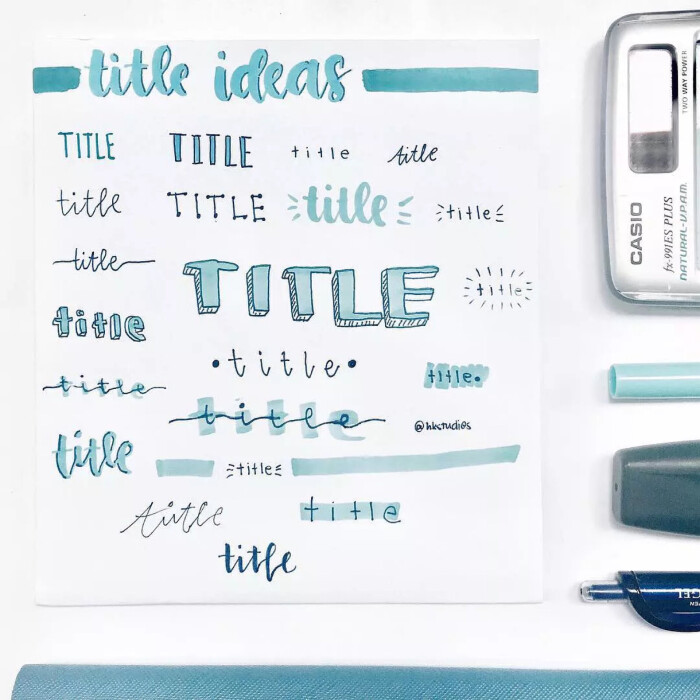 title ideas
TITLE TITLE title title
title TITLE title title
title
TITLE
title
title
• title •
title.
title
title
@hkstudies
title
title
title title
title
CASIO
fx-991ES PLUS
NATURAL-V.P.A.M.
TWO WAY POWER
GEL
PEN